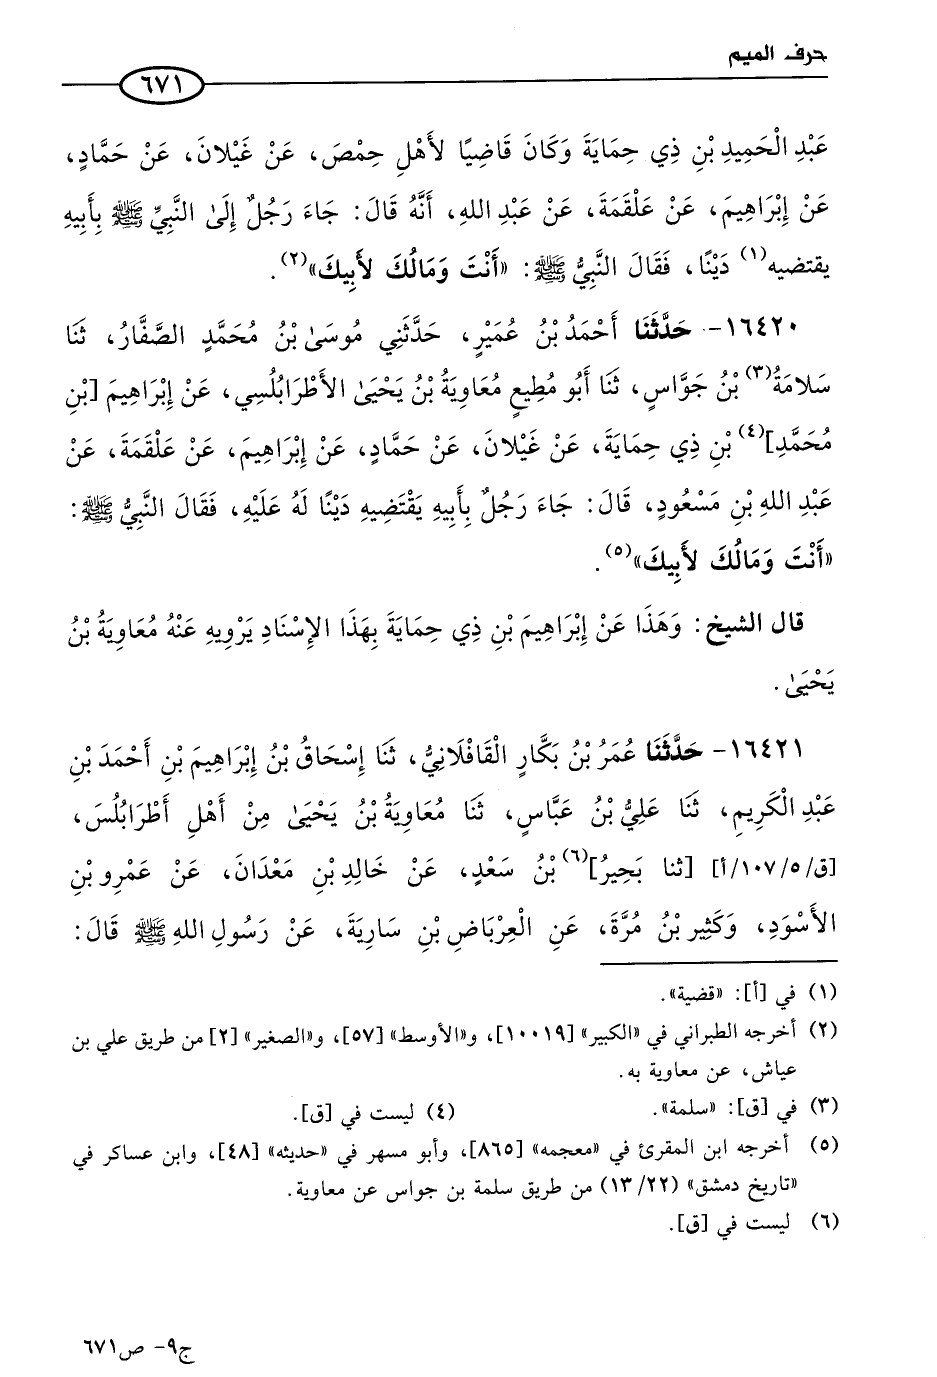 حرف الميم
٦٧١
عَبْدِ الْحَمِيدِ بْنِ ذِي حِمَايَةَ وَكَانَ قَاضِيًا لأَهْلِ حِمْصَ، عَنْ غَيْلانَ، عَنْ حَمَّادٍ،
عَنْ إِبْرَاهِيمَ، عَنْ عَلْقَمَةَ، عَنْ عَبْدِ اللهِ، أَنَّهُ قَالَ: جَاءَ رَجُلٌ إِلَىٰ النَّبِيِّ ﷺ بِأَبِيهِ
يقتضيه(١) دَيْنًا، فَقَالَ النَّبِيُّ ﷺ: «أَنْتَ وَمَالُكَ لأَبِيكَ»(٢).
١٦٤٢٠- حَدَّثَنَا أَحْمَدُ بْنُ عُمَيْرٍ، حَدَّثَنِي مُوسَىٰ بْنُ مُحَمَّدٍ الصَّفَّارُ، ثَنَا
سَلامَةُ(٣) بْنُ جَوَّاسٍ، ثَنَا أَبُو مُطِيعٍ مُعَاوِيَةُ بْنُ يَحْيَىٰ الأَطْرَابُلُسِي، عَنْ إِبْرَاهِيمَ [بْنِ
مُحَمَّدِ](٤) بْنِ ذِي حِمَايَةَ، عَنْ غَيْلانَ، عَنْ حَمَّادٍ، عَنْ إِبْرَاهِيمَ، عَنْ عَلْقَمَةَ، عَنْ
عَبْدِ اللهِ بْنِ مَسْعُودٍ، قَالَ: جَاءَ رَجُلٌ بِأَبِيهِ يَقْتَضِيهِ دَيْنًا لَهُ عَلَيْهِ، فَقَالَ النَّبِيُّ ﷺ:
«أَنْتَ وَمَالُكَ لأَبِيكَ»(٥).
قال الشيخ: وَهَذَا عَنْ إِبْرَاهِيمَ بْنِ ذِي حِمَايَةَ بِهَذَا الإِسْنَادِ يَرْوِيهِ عَنْهُ مُعَاوِيَةُ بْنُ
يَحْيَىٰ.
١٦٤٢١- حَدَّثَنَا عُمَرُ بْنُ بَكَّارٍ الْقَافْلَانِيُّ، ثَنَا إِسْحَاقُ بْنُ إِبْرَاهِيمَ بْنِ أَحْمَدَ بْنِ
عَبْدِ الْكَرِيمِ، ثَنَا عَلِيُّ بْنُ عَبَّاسٍ، ثَنَا مُعَاوِيَةُ بْنُ يَحْيَىٰ مِنْ أَهْلِ أَطْرَابُلُسَ،
[ق/٥/١٠٧/أ] [ثنا بَحِيرُ](٦) بْنُ سَعْدٍ، عَنْ خَالِدِ بْنِ مَعْدَانَ، عَنْ عَمْرِو بْنِ
الأَسْوَدِ، وَكَثِيرِ بْنُ مُرَّةَ، عَنِ الْعِرْبَاضِ بْنِ سَارِيَةَ، عَنْ رَسُولِ اللهِ ﷺ قَالَ:
(١) في [أ]: «قضية».
(٢) أخرجه الطبراني في «الكبير» [١٠٠١٩]، و«الأوسط» [٥٧]، و«الصغير» [٢] من طريق علي بن
عياش، عن معاوية به.
(٣) في [ق]: «سلمة». (٤) ليست في [ق].
(٥) أخرجه ابن المقرئ في «معجمه» [٨٦٥]، وأبو مسهر في «حديثه» [٤٨]، وابن عساكر في
«تاريخ دمشق» (١٣/٢٢) من طريق سلمة بن جواس عن معاوية.
(٦) ليست في [ق].
ج٩- ص٦٧١